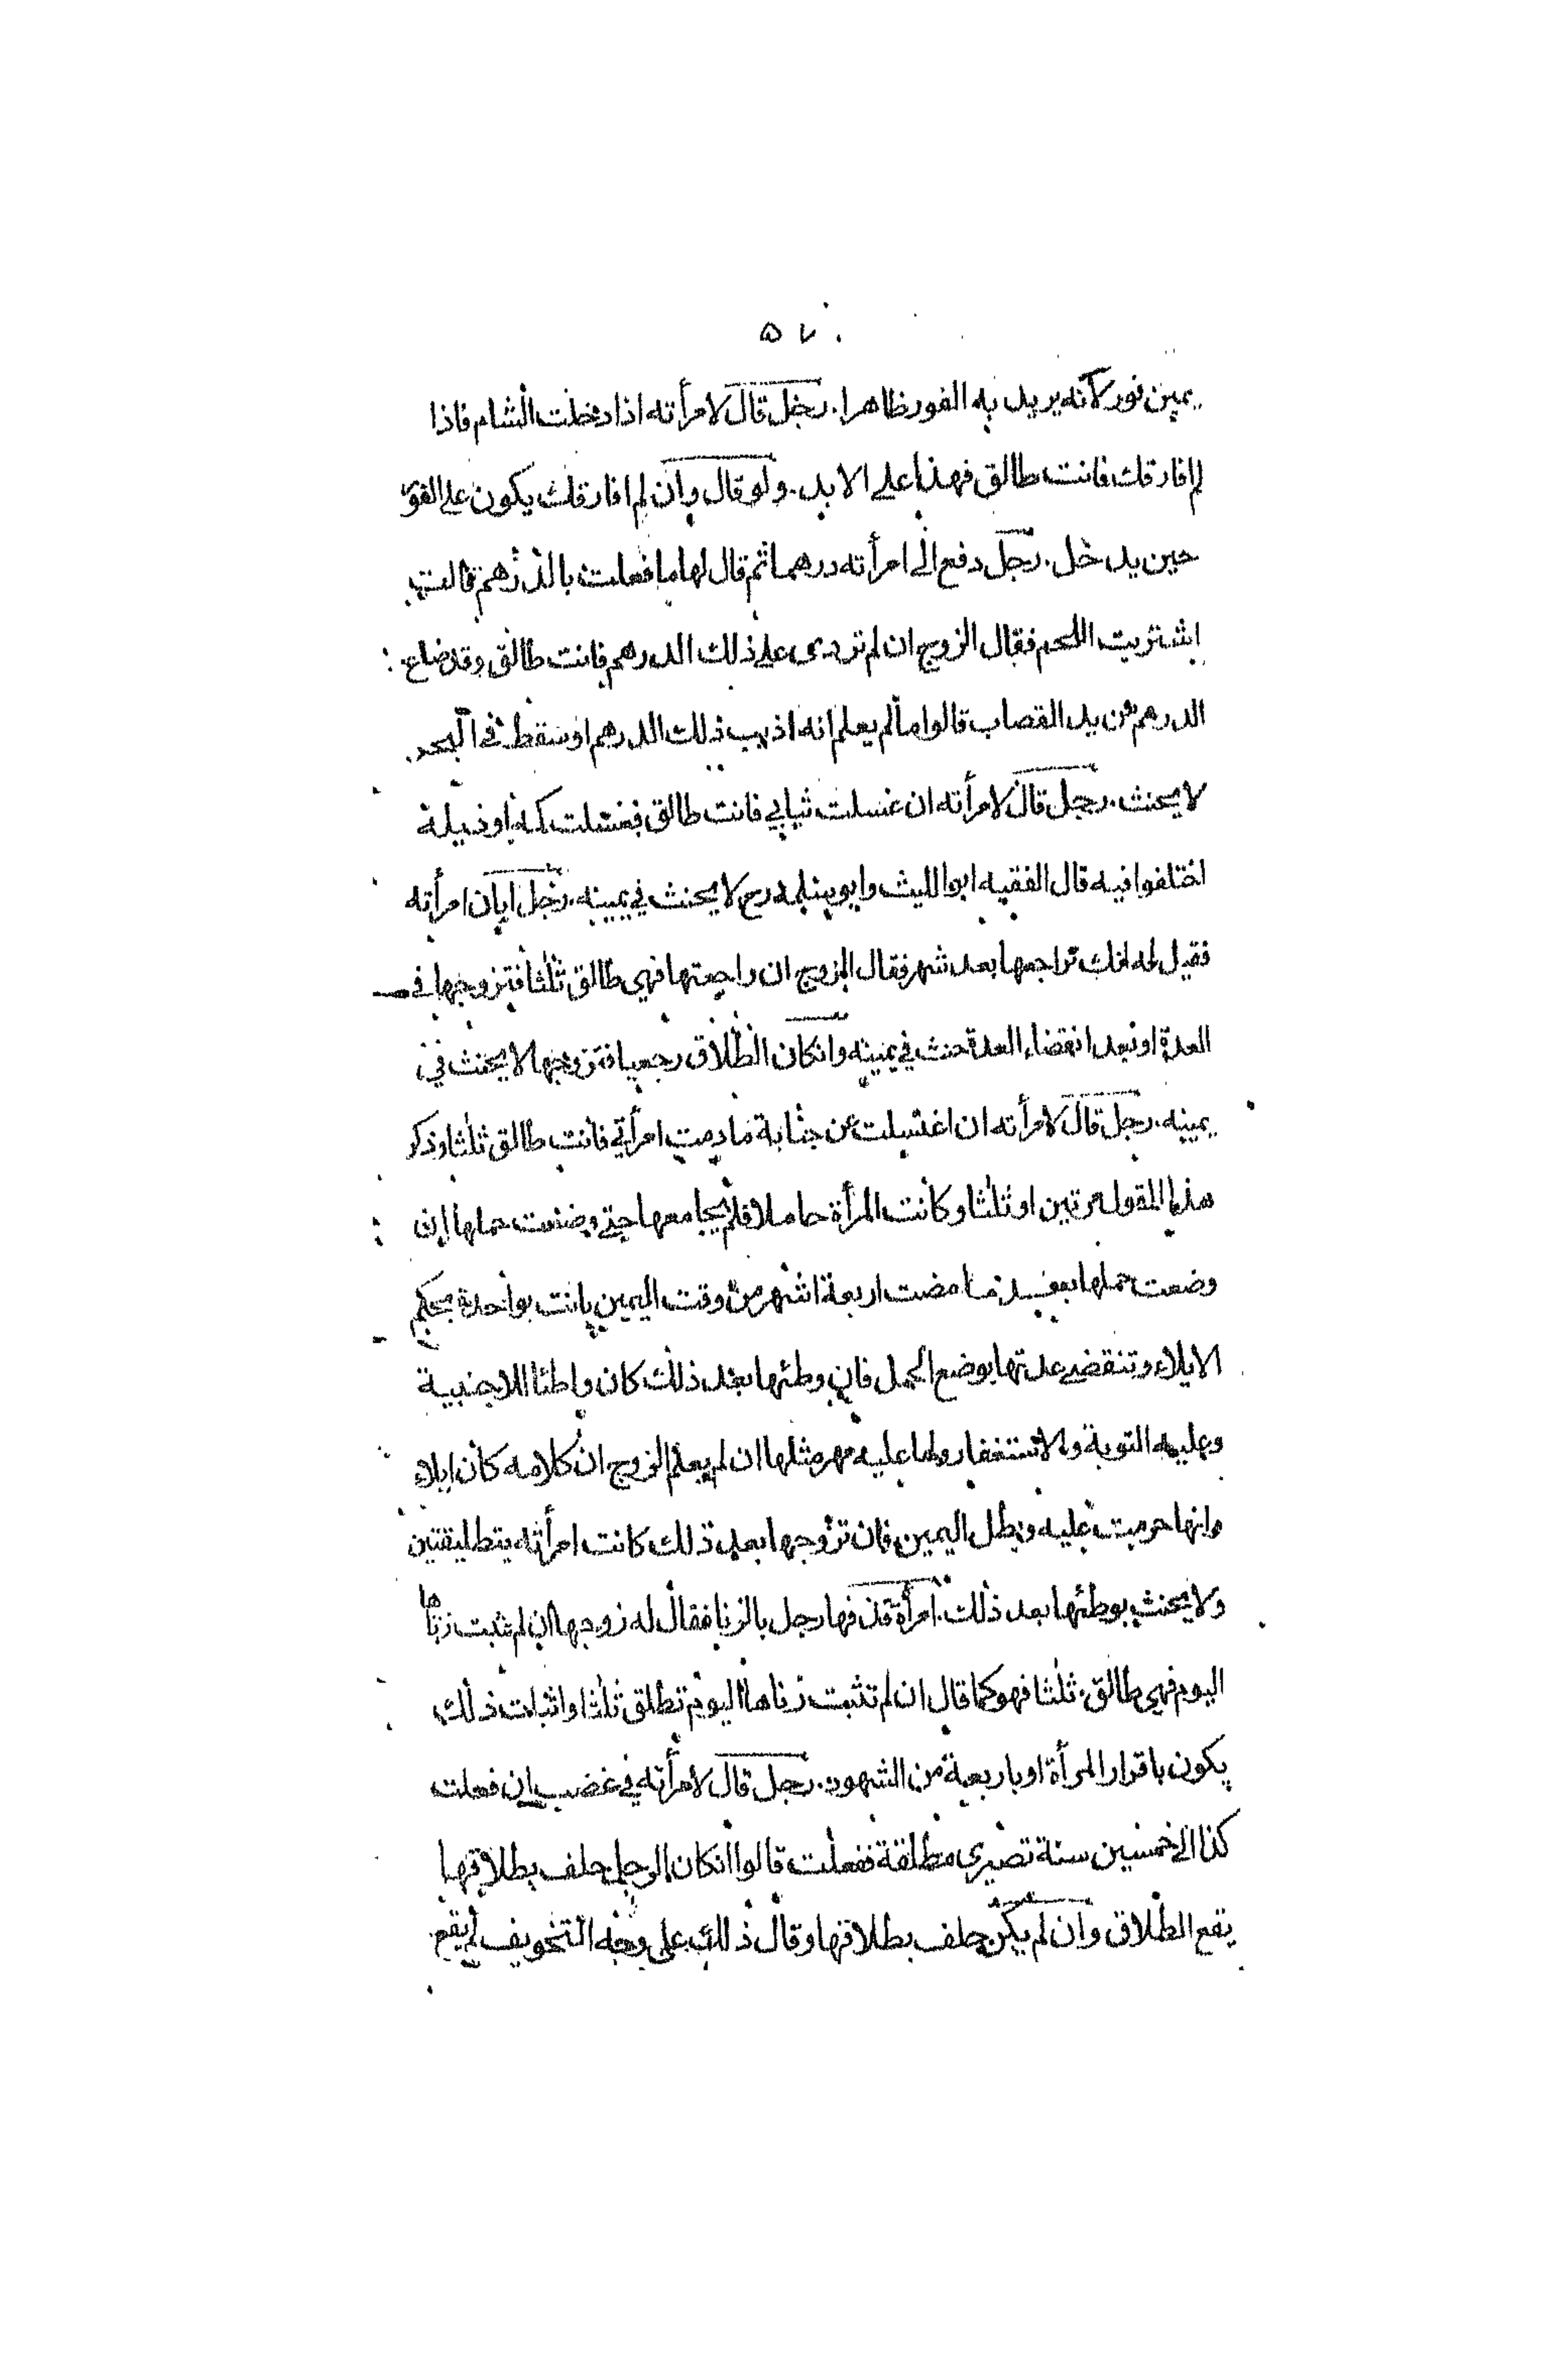 ٥٧
يمين فور لانه يريد به الفور ظاهرا. رجل قال لامرأته اذا دخلت الشام فاذا
لم افارقك فانت طالق فهذا على الابد. ولو قال وان لم افارقك يكون على الفور
حين يدخل. رجل دفع الى امرأته درهما ثم قال لها ما فعلت بالدرهم قالت
اشتريت اللحم فقال الزوج ان لم تردى على ذلك الدرهم فانت طالق وقد ضاع
الدرهم من يد القصاب قالوا ما لم يعلم انه اذيب ذلك الدرهم او سقط في البحر
لا يحنث. رجل قال لامرأته ان غسلت ثيابي فانت طالق فغسلت كمه او ذيله
اختلفوا فيه قال الفقيه ابو الليث وابو رح لا يحنث في يمينه. رجل ابان امرأته
فقيل له انك تراجعها بعد شهر فقال الزوج ان راجعتها فهي طالق ثلثا فتزوجها في
العدة او بعد انقضاء العدة حنث في يمينه وانكان الطلاق رجعيا فتزوجها لا يحنث في
يمينه. رجل قال لامرأته ان اغتسلت من جنابة ما دمت امرأتي فانت طالق ثلثا وذكر
هذا القول مرتين او ثلثا وكانت المرأة حاملا فلم يجامعها حتى وضعت حملها ان
وضعت حملها بعد ما مضت اربعة اشهر من وقت اليمين بانت بواحدة بحكم
الايلاء وتنقضى عدتها بوضع الحمل فان وطئها بعد ذلك كان واطئا للاجنبية
وعليه التوبة والاستغفار ولها عليه مهر مثلها ان لم يعلم الزوج ان كلامه كان ايلاء
وانها حرمت عليه وبطل اليمين فان تزوجها بعد ذلك كانت امرأته بتطليقتين
ولا يحنث بوطئها بعد ذلك. امرأة قذفها رجل بالزنا فقال له زوجها ان لم تثبت زناها
اليوم فهي طالق ثلثا فهو كما قال ان لم تثبت زناها اليوم تطلق ثلثا واثبات ذلك
يكون باقرار المرأة او باربعة من الشهود. رجل قال لامرأته في غضب ان فعلت
كذا الى خمسين سنة تصيرى مطلقة ففعلت قالوا انكان الرجل حلف بطلاقها
يقع الطلاق وان لم يكن حلف بطلاقها وقال ذلك على وجه التخويف لم يقع